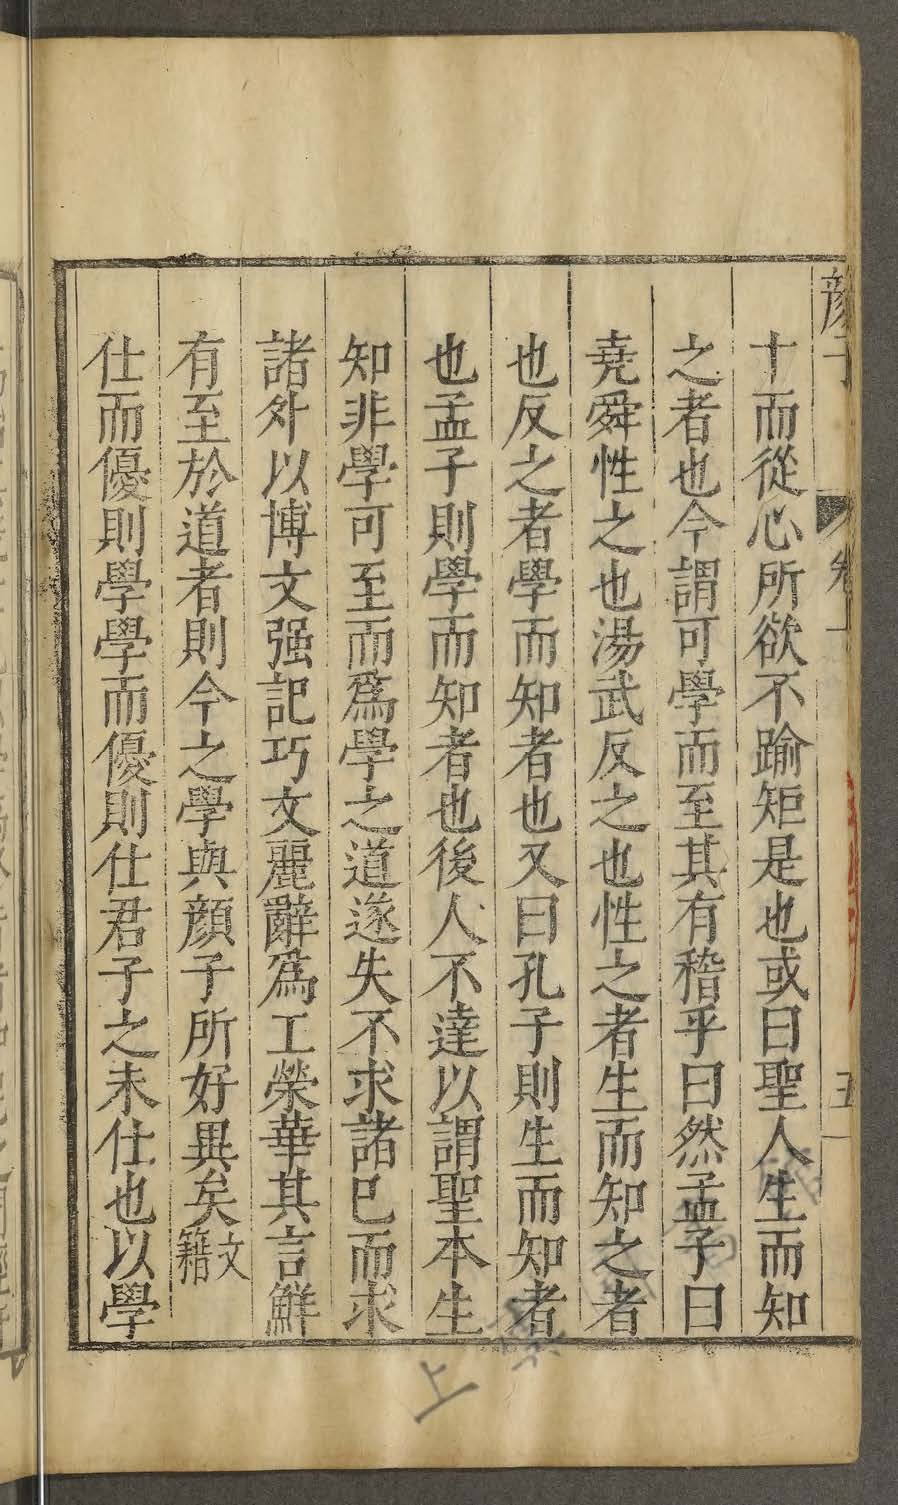 顏子 卷一 五
十而從心所欲不踰矩是也或曰聖人生而知
之者也今謂可學而至其有稽乎曰然孟子曰
堯舜性之也湯武反之也性之者生而知之者
也反之者學而知者也又曰孔子則生而知者
也孟子則學而知者也後人不達以謂聖本生
知非學可至而爲學之道遂失不求諸已而求
諸外以博文强記巧文麗辭爲工榮華其言鮮
有至於道者則今之學與顏子所好異矣文籍
仕而優則學學而優則仕君子之未仕也以學